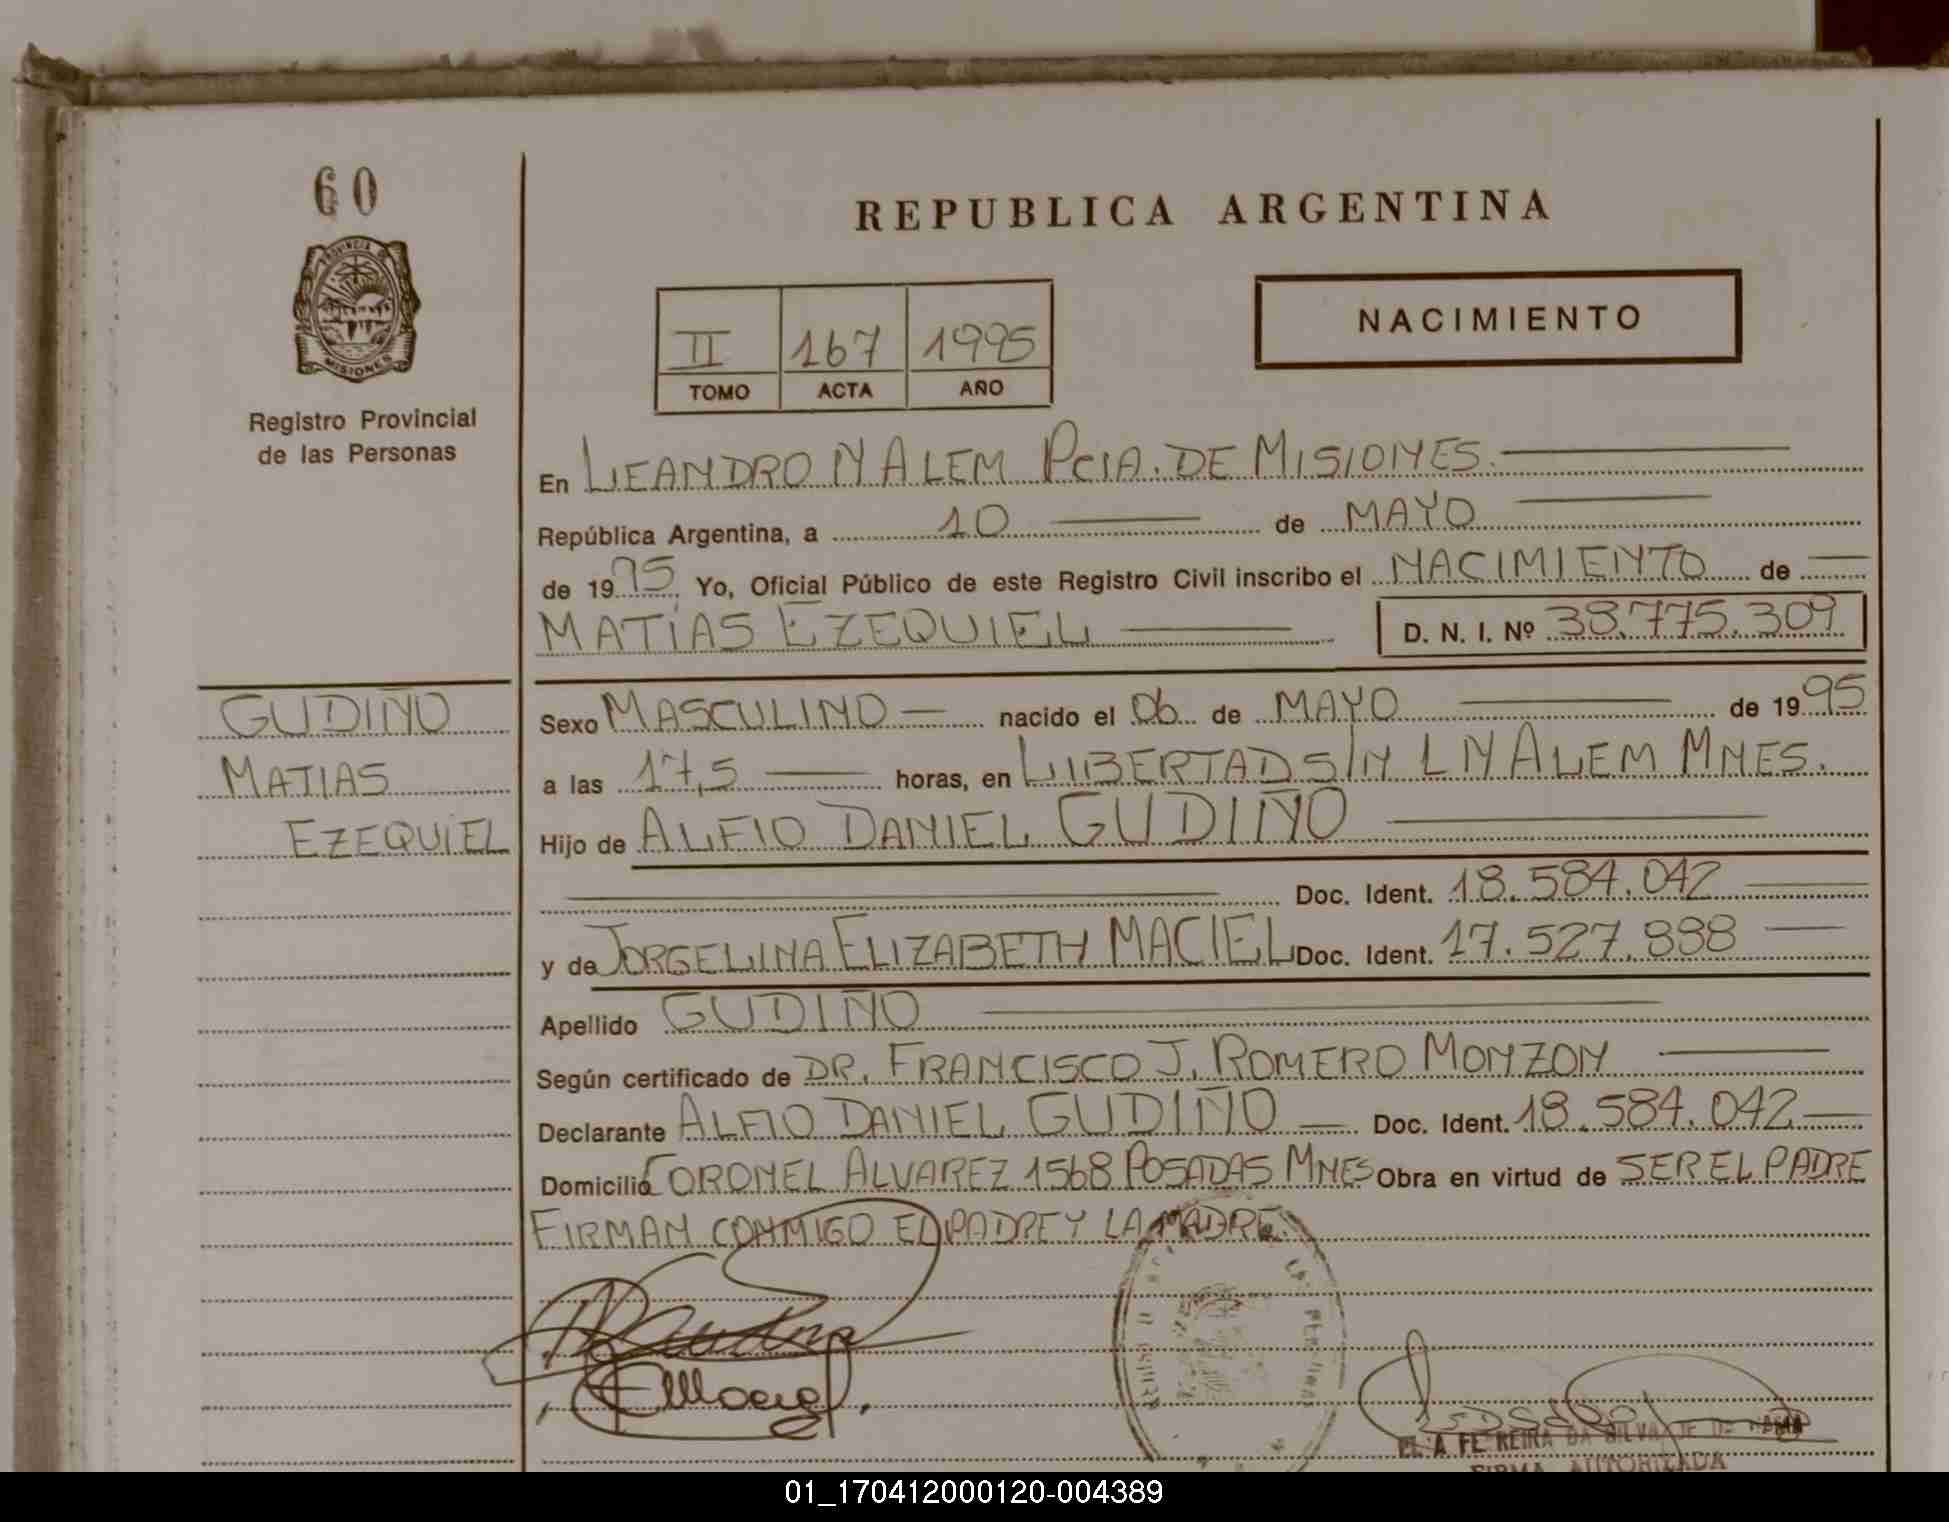 60
PROVINCIA DE
MISIONES
Registro Provincial
de las Personas
REPUBLICA ARGENTINA
NACIMIENTO
II 167 1995
TOMO ACTA AÑO
En LEANDRO N ALEM PCIA. DE MISIONES.
República Argentina, a 10 de MAYO
de 1995 Yo, Oficial Público de este Registro Civil inscribo el NACIMIENTO de
MATÍAS EZEQUIEL D. N. I. Nº 38.775.309
GUDIÑO
MATIAS
EZEQUIEL
Sexo MASCULINO nacido el 06 de MAYO de 1995
a las 17,5 horas, en LIBERTAD S/N L N ALEM MNES.
Hijo de ALFIO DANIEL GUDIÑO
Doc. Ident. 18.584.042
y de JORGELINA ELIZABETH MACIEL Doc. Ident. 17.527.888
Apellido GUDIÑO
Según certificado de DR. FRANCISCO J. ROMERO MONZON
Declarante ALFIO DANIEL GUDIÑO Doc. Ident. 18.584.042
Domicilio CORONEL ALVAREZ 1568 POSADAS MNES Obra en virtud de SER EL PADRE
FIRMAN CONMIGO EL PADRE Y LA MADRE.
EMaciel
FERREIRA DA SILVA DE
FIRMA AUTORIZADA
01_170412000120-004389